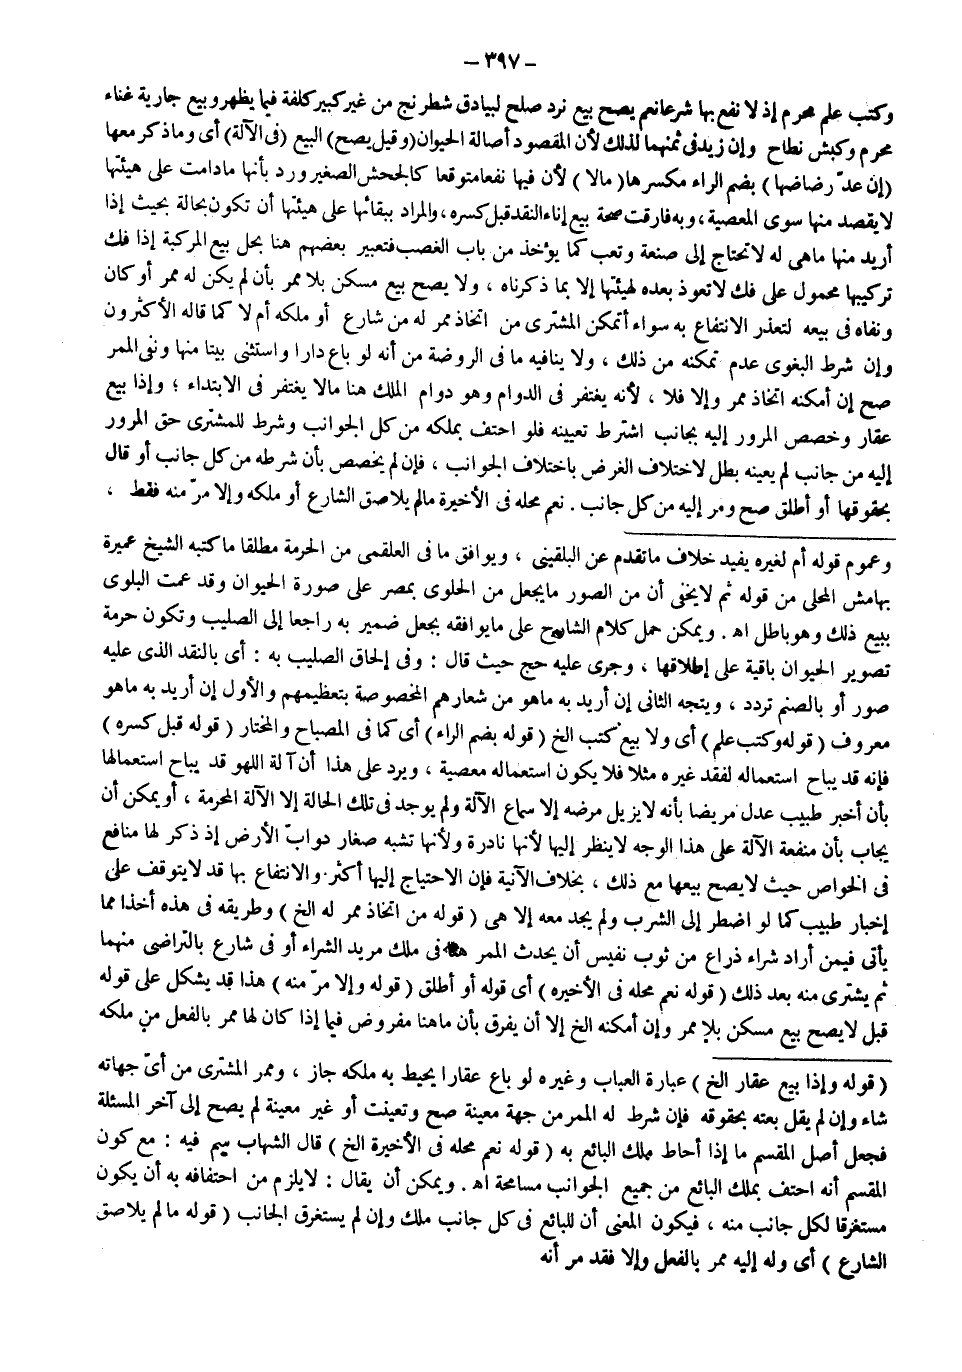 - ٣٩٧ -
وكتب علم محرم إذ لا نفع بها شرعا نعم يصح بيع نرد صلح لبيادق شطرنج من غير كبير كلفة فيما يظهر وبيع جارية غناء
محرم وكبش نطاح وإن زيد فى ثمنهما لذلك لأن المقصود أصالة الحيوان (وقيل يصح) البيع (فى الآلة) أى وما ذكر معها
(إن عدّ رضاضها) بضم الراء مكسرها (مالا) لأن فيها نفعا متوقعا كالجحش الصغير ورد بأنها مادامت على هيئتها
لايقصد منها سوى المعصية ، وبه فارقت صحة بيع إناء النقد قبل كسره ، والمراد ببقائها على هيئتها أن تكون بحالة بحيث إذا
أريد منها ماهى له لاتحتاج إلى صنعة وتعب كما يؤخذ من باب الغصب فتعبير بعضهم هنا بحل بيع المركبة إذا فك
تركيبها محمول على فك لاتعوذ بعده لهيئتها إلا بما ذكرناه ، ولا يصح بيع مسكن بلا ممر بأن لم يكن له ممر أو كان
ونفاه فى بيعه لتعذر الانتفاع به سواء أتمكن المشترى من اتخاذ ممر له من شارع أو ملكه أم لا كما قاله الأكثرون
وإن شرط البغوى عدم تمكنه من ذلك ، ولا ينافيه ما فى الروضة من أنه لو باع دارا واستثنى بيتا منها ونفى الممر
صح إن أمكنه اتخاذ ممر وإلا فلا ، لأنه يغتفر فى الدوام وهو دوام الملك هنا مالا يغتفر فى الابتداء ؛ وإذا بيع
عقار وخصص المرور إليه بجانب اشترط تعيينه فلو احتف بملكه من كل الجوانب وشرط للمشترى حق المرور
إليه من جانب لم يعينه بطل لاختلاف الغرض باختلاف الجوانب ، فإن لم يخصص بأن شرطه من كل جانب أو قال
بحقوقها أو أطلق صح ومر إليه من كل جانب . نعم محله فى الأخيرة مالم يلاصق الشارع أو ملكه وإلا مرّ منه فقط ،
وعموم قوله أم لغيره يفيد خلاف ماتقدم عن البلقينى ، ويوافق ما فى العلقمى من الحرمة مطلقا ما كتبه الشيخ عميرة
بهامش المحلى من قوله ثم لايخفى أن من الصور مايجعل من الحلوى بمصر على صورة الحيوان وقد عمت البلوى
ببيع ذلك وهو باطل اه . ويمكن حمل كلام الشارح على مايوافقه بجعل ضمير به راجعا إلى الصليب وتكون حرمة
تصوير الحيوان باقية على إطلاقها ، وجرى عليه حج حيث قال : وفى إلحاق الصليب به : أى بالنقد الذى عليه
صور أو بالصنم تردد ، ويتجه الثانى إن أريد به ماهو من شعارهم المخصوصة بتعظيمهم والأول إن أريد به ماهو
معروف ( قوله وكتب علم ) أى ولا بيع كتب الخ ( قوله بضم الراء ) أى كما فى المصباح والمختار ( قوله قبل كسره )
فإنه قد يباح استعماله لفقد غيره مثلا فلا يكون استعماله معصية ، ويرد على هذا أن آلة اللهو قد يباح استعمالها
بأن أخبر طبيب عدل مريضا بأنه لايزيل مرضه إلا سماع الآلة ولم يوجد فى تلك الحالة إلا الآلة المحرمة ، أو يمكن أن
يجاب بأن منفعة الآلة على هذا الوجه لاينظر إليها لأنها نادرة ولأنها تشبه صغار دوابّ الأرض إذ ذكر لها منافع
فى الخواص حيث لايصح بيعها مع ذلك ، بخلاف الآنية فإن الاحتياج إليها أكثر والانتفاع بها قد لايتوقف على
إخبار طبيب كما لو اضطر إلى الشرب ولم يجد معه إلا هى ( قوله من اتخاذ ممر له الخ ) وطريقه فى هذه أخذا مما
يأتى فيمن أراد شراء ذراع من ثوب نفيس أن يحدث الممر فى ملك مريد الشراء أو فى شارع بالتراضى منهما
ثم يشترى منه بعد ذلك ( قوله نعم محله فى الأخيره ) أى قوله أو أطلق ( قوله وإلا مرّ منه ) هذا قد يشكل على قوله
قبل لايصح بيع مسكن بلا ممر وإن أمكنه الخ إلا أن يفرق بأن ماهنا مفروض فيما إذا كان لها ممر بالفعل من ملكه
( قوله وإذا بيع عقار الخ ) عبارة العباب وغيره لو باع عقارا يحيط به ملكه جاز ، وممر المشترى من أىّ جهاته
شاء وإن لم يقل بعته بحقوقه فإن شرط له الممر من جهة معينة صح وتعينت أو غير معينة لم يصح إلى آخر المسئلة
فجعل أصل المقسم ما إذا أحاط ملك البائع به ( قوله نعم محله فى الأخيرة الخ ) قال الشهاب سم فيه : مع كون
المقسم أنه احتف بملك البائع من جميع الجوانب مسامحة اه . ويمكن أن يقال : لايلزم من احتفافه به أن يكون
مستغرقا لكل جانب منه ، فيكون المعنى أن للبائع فى كل جانب ملك وإن لم يستغرق الجانب ( قوله مالم يلاصق
الشارع ) أى وله إليه ممر بالفعل وإلا فقد مر أنه